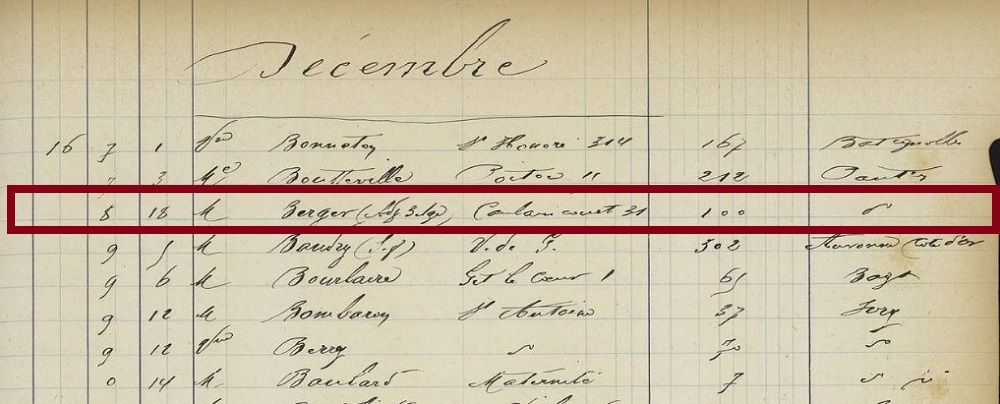 Décembre
16 7 1 Bonneton St Honoré 314 167 Batignolle
7 3 Me Boutteville Poitou 11 212 Pantin
8 18 M Berger Caulaincourt 31 100
9 5 M Baudry V. de G. 302
9 6 M Bourlaire Git le Cœur 1 65 Bag
9 12 M Bombaron St Antoine 37 Ivry
9 12 Berry
0 14 M Boulard Maternité 7